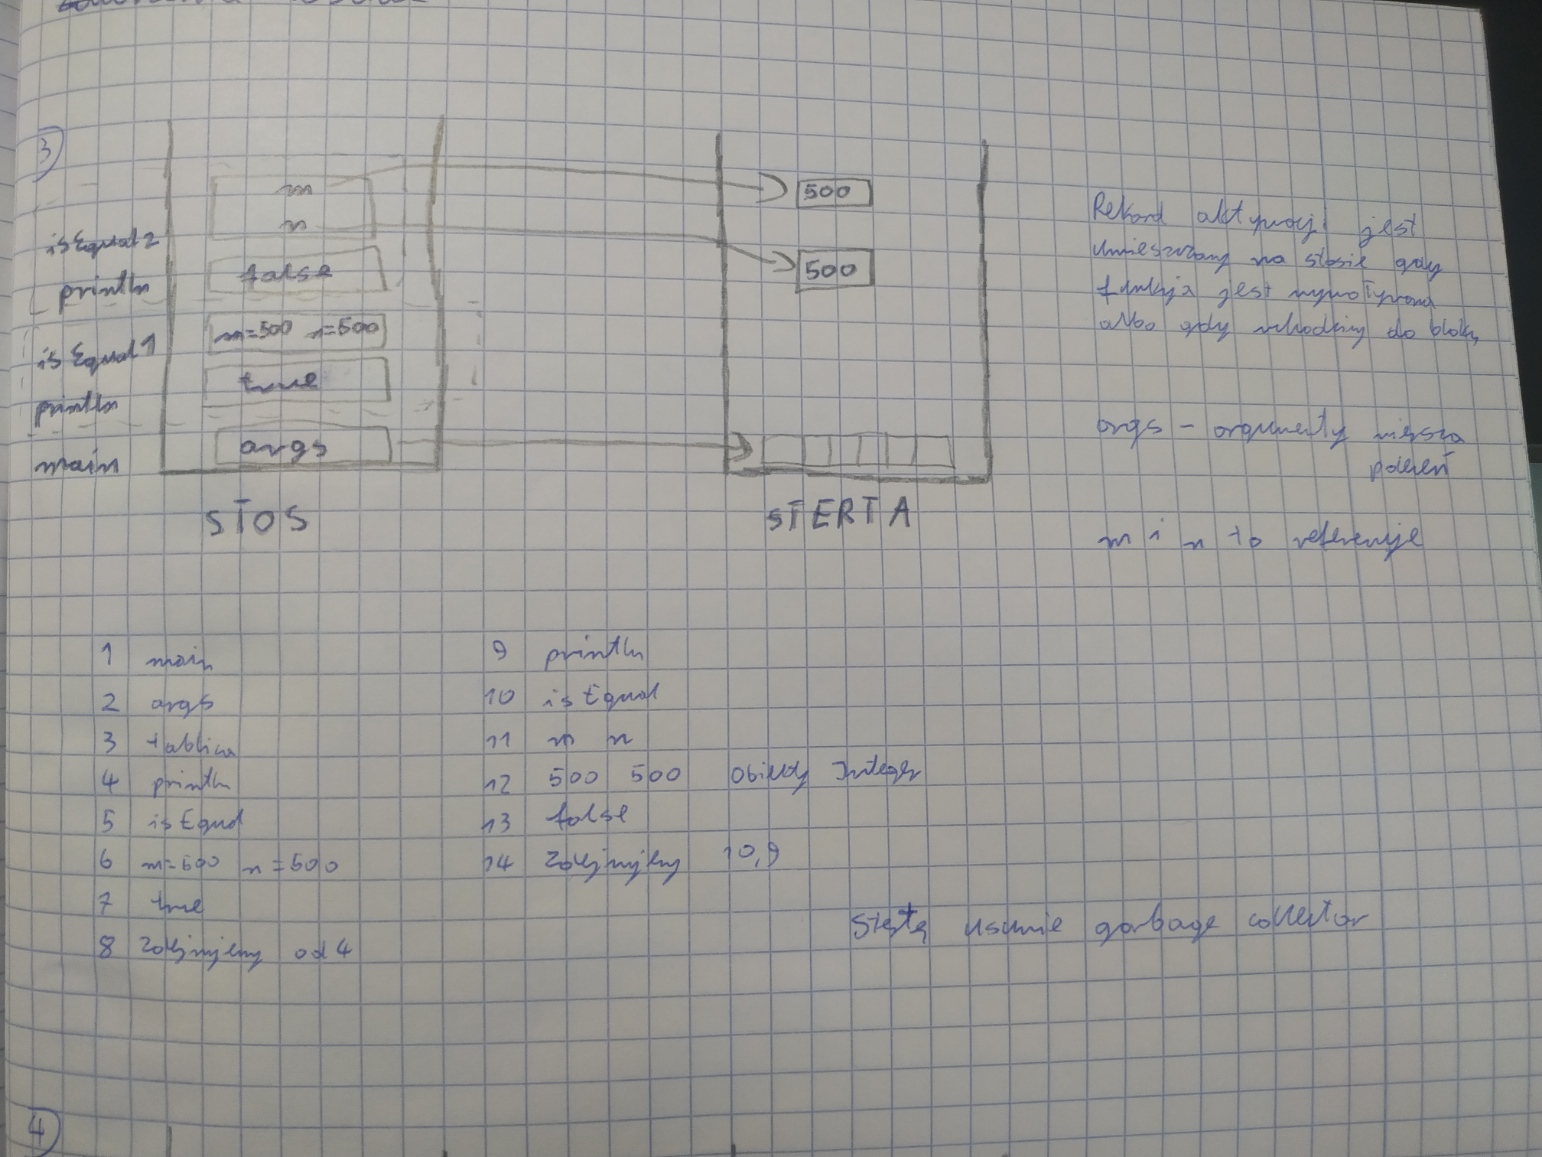 3
m
500
n
isEqual2
500
false
println
m=500 n=500
isEqual1
true
println
args
main
STOS
STERTA
Rekord aktywacji jest
umieszczany na stosie gdy
funkcja jest wywoływana
albo gdy wchodzimy do bloku
args - argumenty wiersza
poleceń
m i n to referencje
1 main
2 args
3 tablica
4 println
5 isEqual
6 m=500 n=500
7 true
8 zdejmujemy od 4
9 println
10 isEqual
11 m n
12 500 500 obiekty Integer
13 false
14 zdejmujemy 10,9
Stertę usunie garbage collector
4